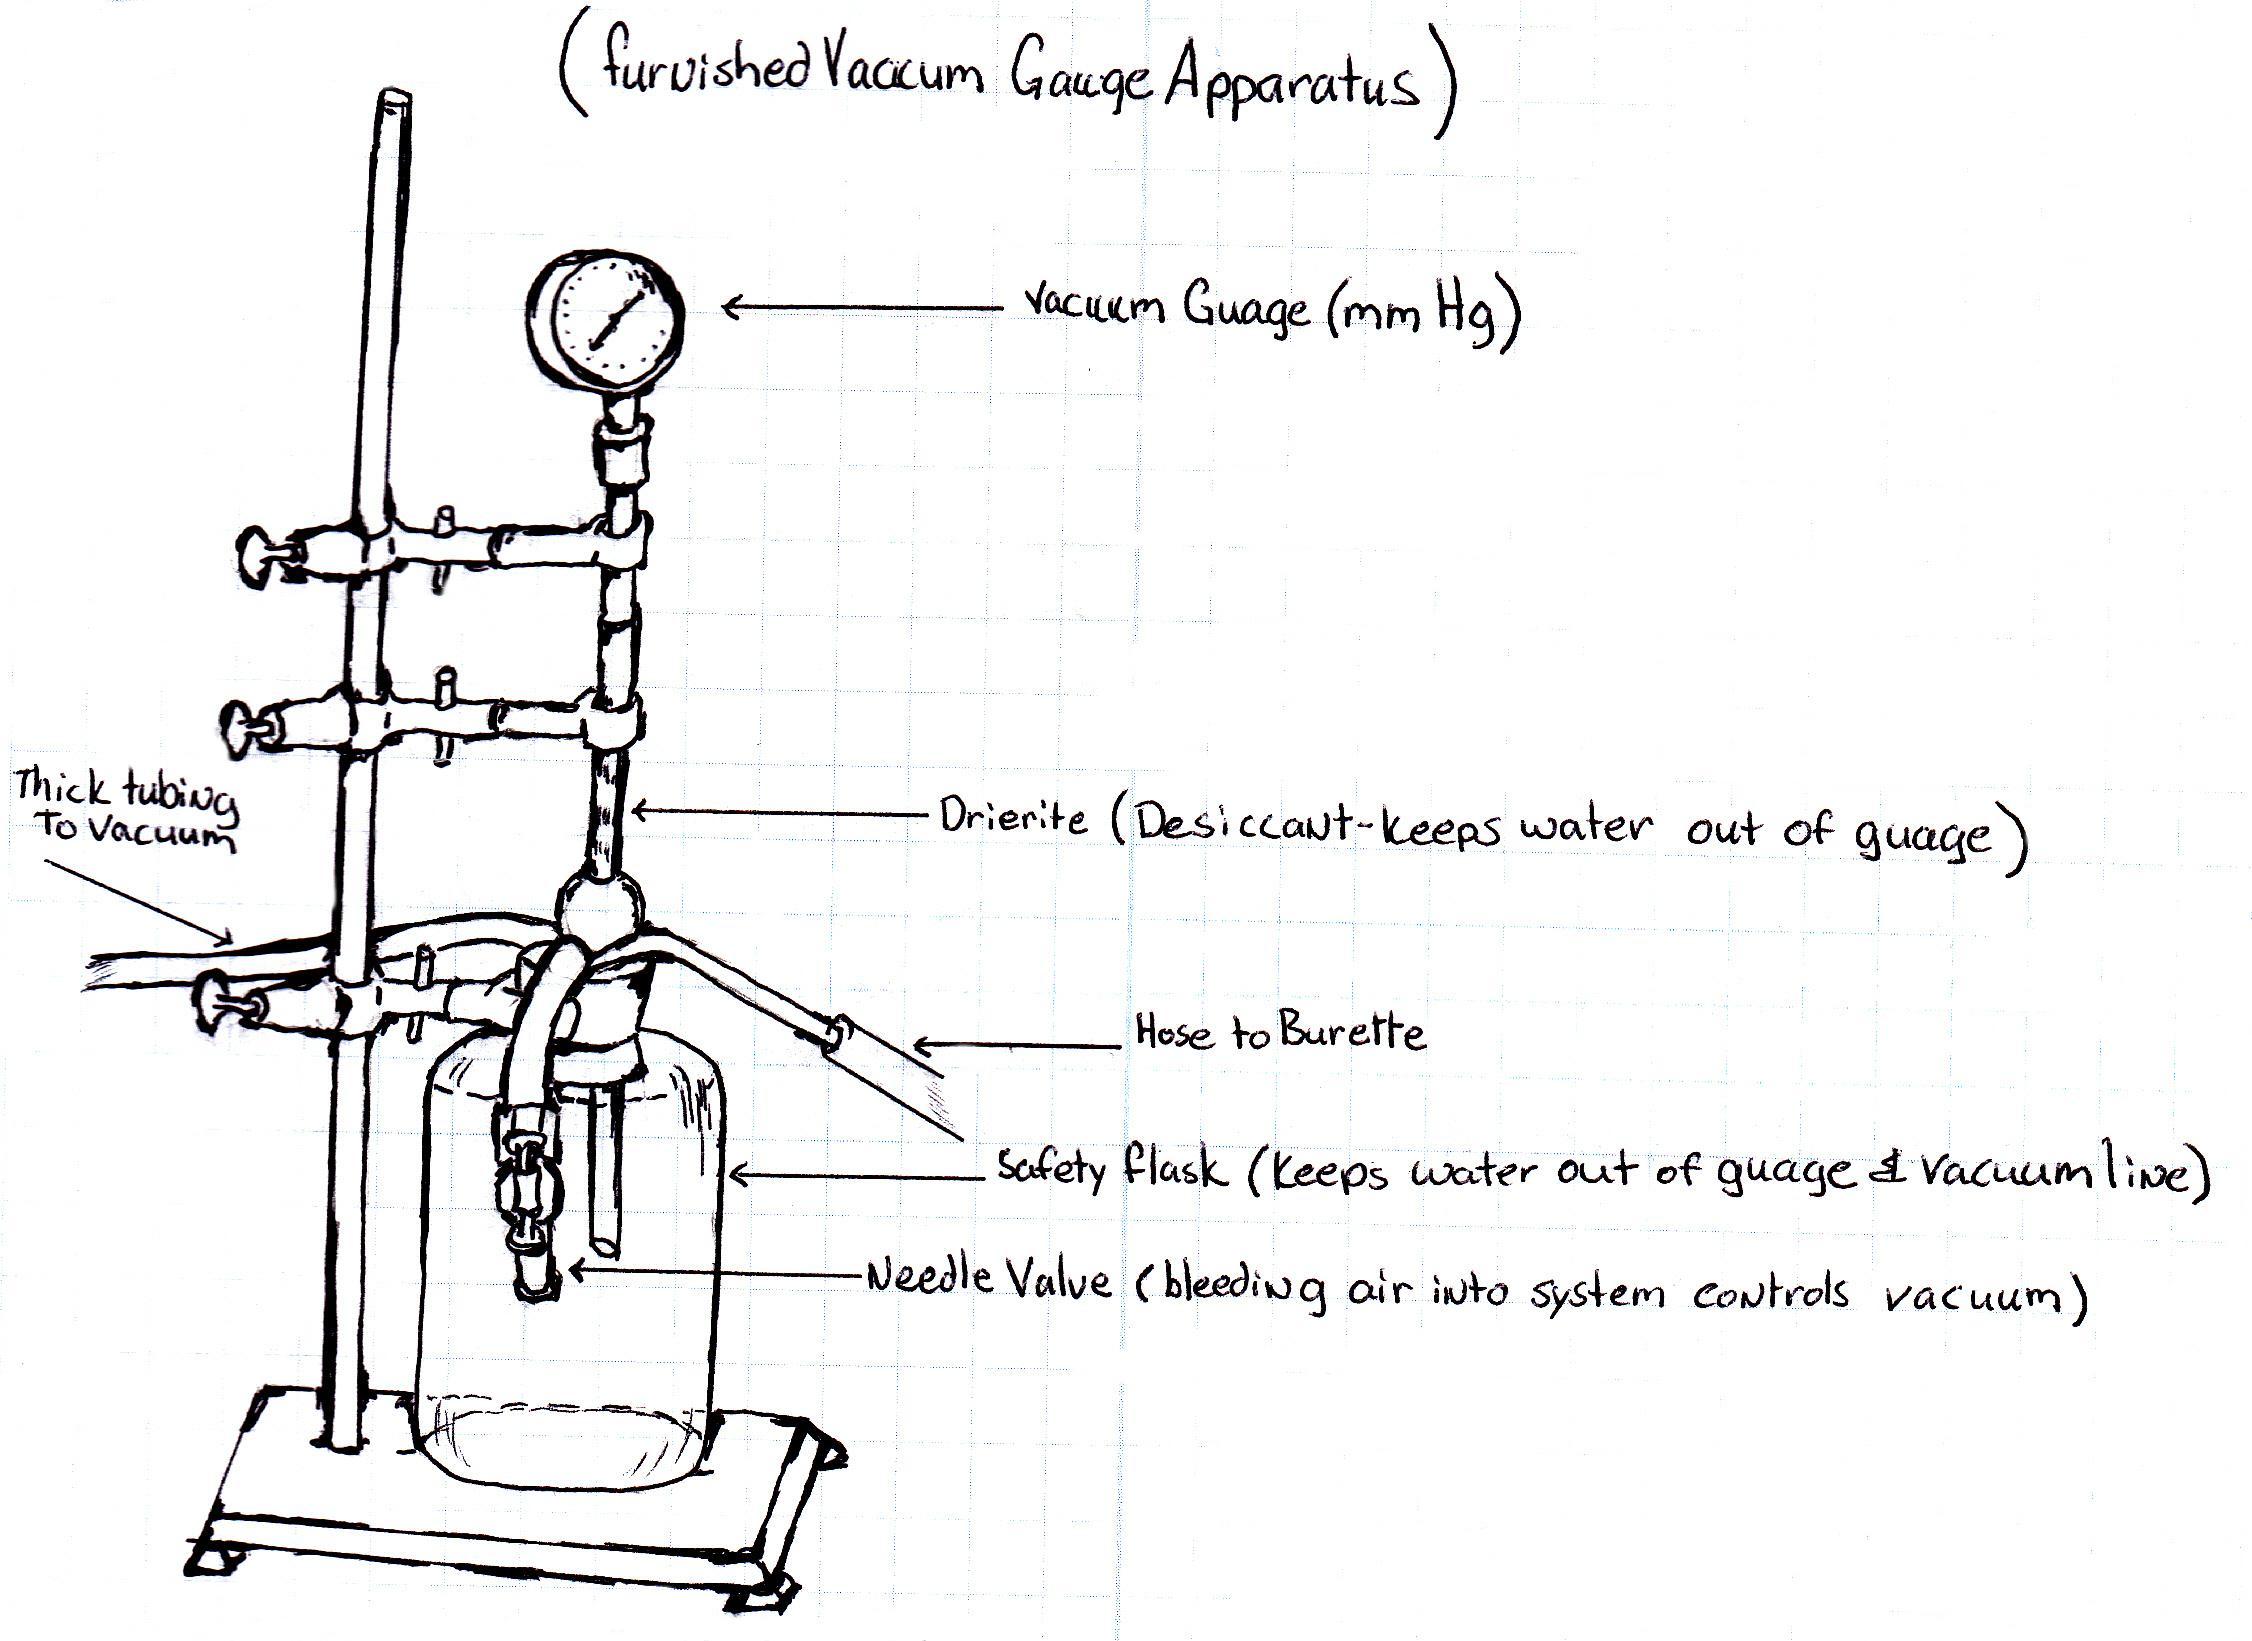 (furnished Vacuum Gauge Apparatus)
Vacuum Guage (mm Hg)
Thick tubing
To Vacuum
Drierite (Desiccant-keeps water out of guage)
Hose to Burette
Safety flask (keeps water out of guage & vacuum line)
Needle Valve (bleeding air into system controls vacuum)